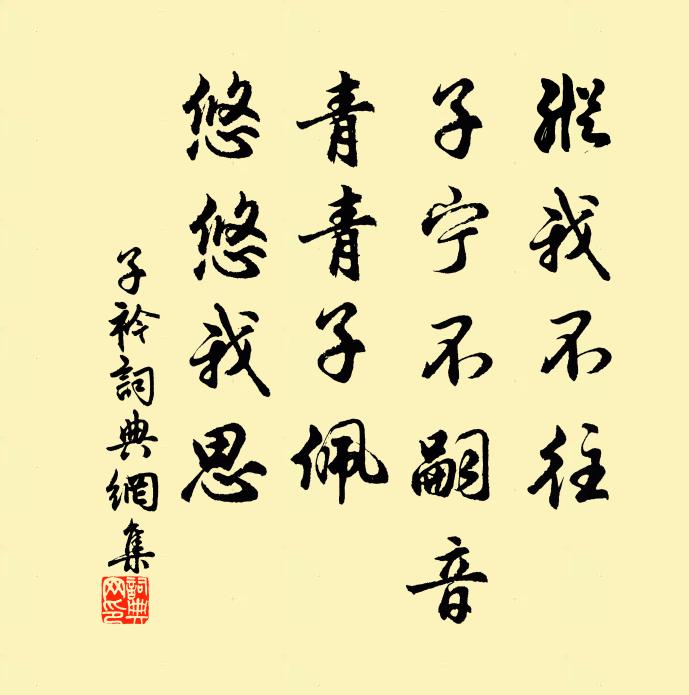 縱我不往
子宁不嗣音
青青子佩
悠悠我思
子衿詞典網集
詞典
网印